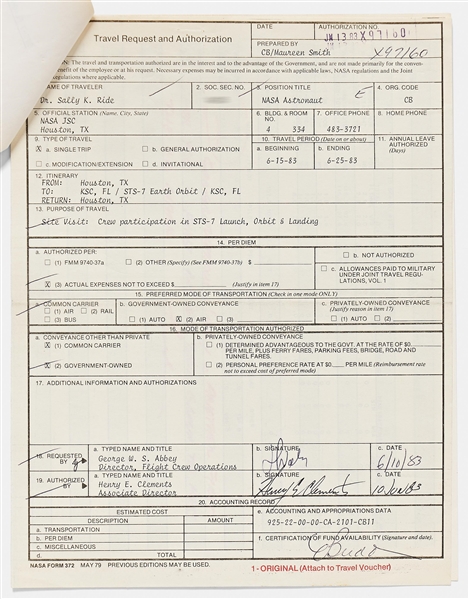 Travel Request and Authorization
DATE
AUTHORIZATION NO.
JN 13 83 X97160
PREPARED BY
CB/Maureen Smith
X97160
N: The travel and transportation authorized are in the interest and to the advantage of the Government, and are not made primarily for the conven-
benefit of the employee or at his request. Necessary expenses may be incurred in accordance with applicable laws, NASA regulations and the Joint
Regulations where applicable.
NAME OF TRAVELER
2. SOC. SEC. NO.
3. POSITION TITLE
4. ORG. CODE
Dr. Sally K. Ride
NASA Astronaut
E
CB
5. OFFICIAL STATION (Name, City, State)
6. BLDG. & ROOM NO.
7. OFFICE PHONE
8. HOME PHONE
NASA JSC
Houston, TX
4 334
483-3721
9. TYPE OF TRAVEL
10. TRAVEL PERIOD (Date on or about)
11. ANNUAL LEAVE AUTHORIZED (Days)
X a. SINGLE TRIP
b. GENERAL AUTHORIZATION
a. BEGINNING
b. ENDING
c. MODIFICATION/EXTENSION
d. INVITATIONAL
6-15-83
6-25-83
12. ITINERARY
FROM: Houston, TX
TO: KSC, FL / STS-7 Earth Orbit / KSC, FL
RETURN: Houston, TX
13. PURPOSE OF TRAVEL
Site Visit: Crew participation in STS-7 Launch, Orbit & Landing
14. PER DIEM
a. AUTHORIZED PER:
b. NOT AUTHORIZED
(1) FMM 9740-37a
(2) OTHER (Specify) (See FMM 9740-37b) $
c. ALLOWANCES PAID TO MILITARY UNDER JOINT TRAVEL REGULATIONS, VOL. 1
X (3) ACTUAL EXPENSES NOT TO EXCEED $ (Justify in item 17)
15. PREFERRED MODE OF TRANSPORTATION (Check in one mode ONLY)
a. COMMON CARRIER
b. GOVERNMENT-OWNED CONVEYANCE
c. PRIVATELY-OWNED CONVEYANCE
(Justify reason in item 17)
(1) AIR (2) RAIL
(3) BUS
(1) AUTO X (2) AIR (3)
(1) AUTO (2)
16. MODE OF TRANSPORTATION AUTHORIZED
a. CONVEYANCE OTHER THAN PRIVATE
b. PRIVATELY-OWNED CONVEYANCE
X (1) COMMON CARRIER
(1) DETERMINED ADVANTAGEOUS TO THE GOVT. AT THE RATE OF $0 PER MILE, PLUS FERRY FARES, PARKING FEES, BRIDGE, ROAD AND TUNNEL FARES.
X (2) GOVERNMENT-OWNED
(2) PERSONAL PREFERENCE RATE AT $0 PER MILE (Reimbursement rate not to exceed cost of preferred mode)
17. ADDITIONAL INFORMATION AND AUTHORIZATIONS
18. REQUESTED BY
a. TYPED NAME AND TITLE
b. SIGNATURE
c. DATE
George W. S. Abbey
Director, Flight Crew Operations
6/10/83
19. AUTHORIZED BY
a. TYPED NAME AND TITLE
b. SIGNATURE
c. DATE
Henry E. Clements
Associate Director
Henry E Clements
10 Jun 83
20. ACCOUNTING RECORD
ESTIMATED COST
e. ACCOUNTING AND APPROPRIATIONS DATA
DESCRIPTION
AMOUNT
925-22-00-00-CA-2101-CB11
a. TRANSPORTATION
b. PER DIEM
f. CERTIFICATION OF FUND AVAILABILITY (Signature and date).
c. MISCELLANEOUS
d. TOTAL
NASA FORM 372 MAY 79 PREVIOUS EDITIONS MAY BE USED.
1 - ORIGINAL (Attach to Travel Voucher)